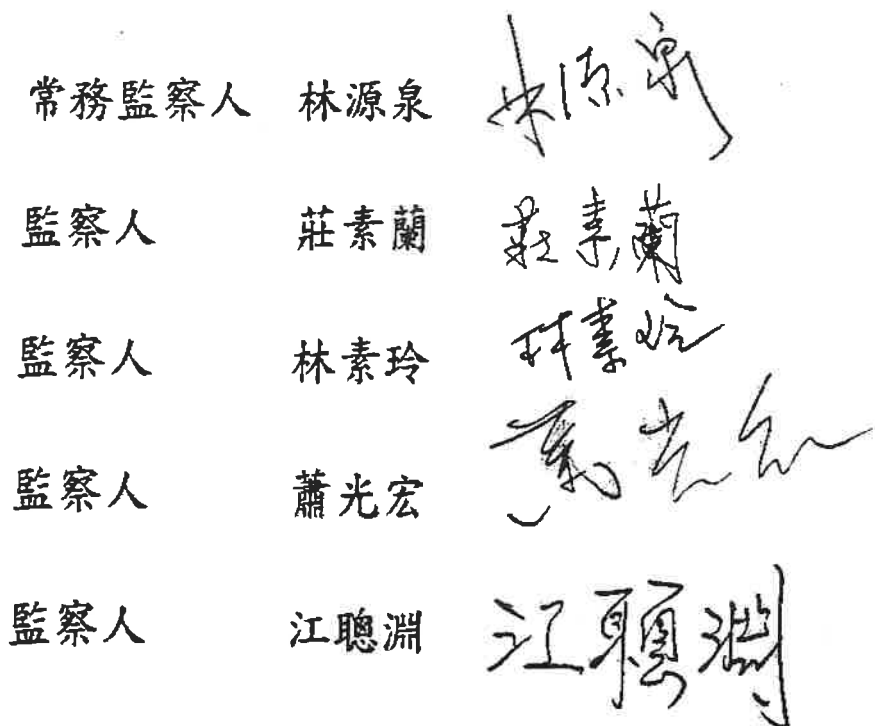 常務監察人 林源泉 林源泉
監察人 莊素蘭 莊素蘭
監察人 林素玲 林素玲
監察人 蕭光宏 蕭光宏
監察人 江聰淵 江聰淵